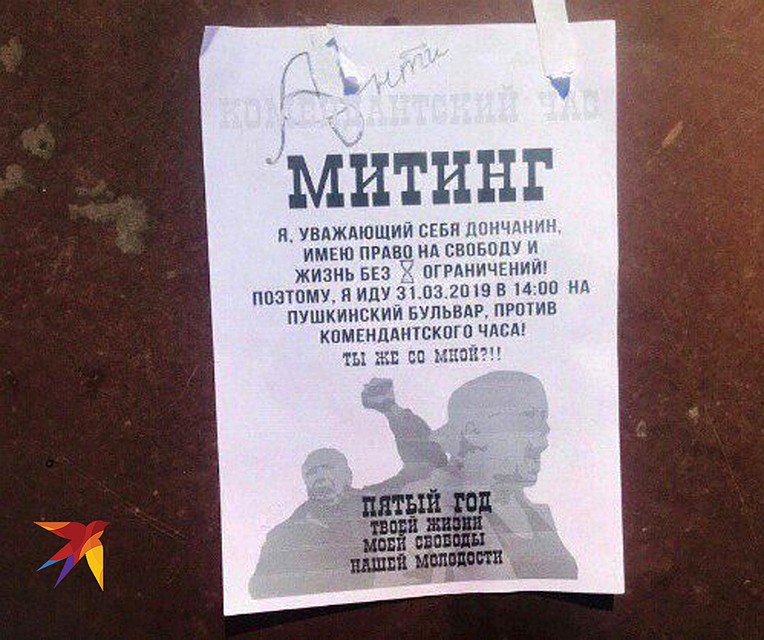 Анти
КОМЕНДАНТСКИЙ ЧАС
МИТИНГ
Я, УВАЖАЮЩИЙ СЕБЯ ДОНЧАНИН,
ИМЕЮ ПРАВО НА СВОБОДУ И
ЖИЗНЬ БЕЗ ОГРАНИЧЕНИЙ!
ПОЭТОМУ, Я ИДУ 31.03.2019 В 14:00 НА
ПУШКИНСКИЙ БУЛЬВАР, ПРОТИВ
КОМЕНДАНТСКОГО ЧАСА!
ТЫ ЖЕ СО МНОЙ?!!
ПЯТЫЙ ГОД
ТВОЕЙ ЖИЗНИ
МОЕЙ СВОБОДЫ
НАШЕЙ МОЛОДОСТИ